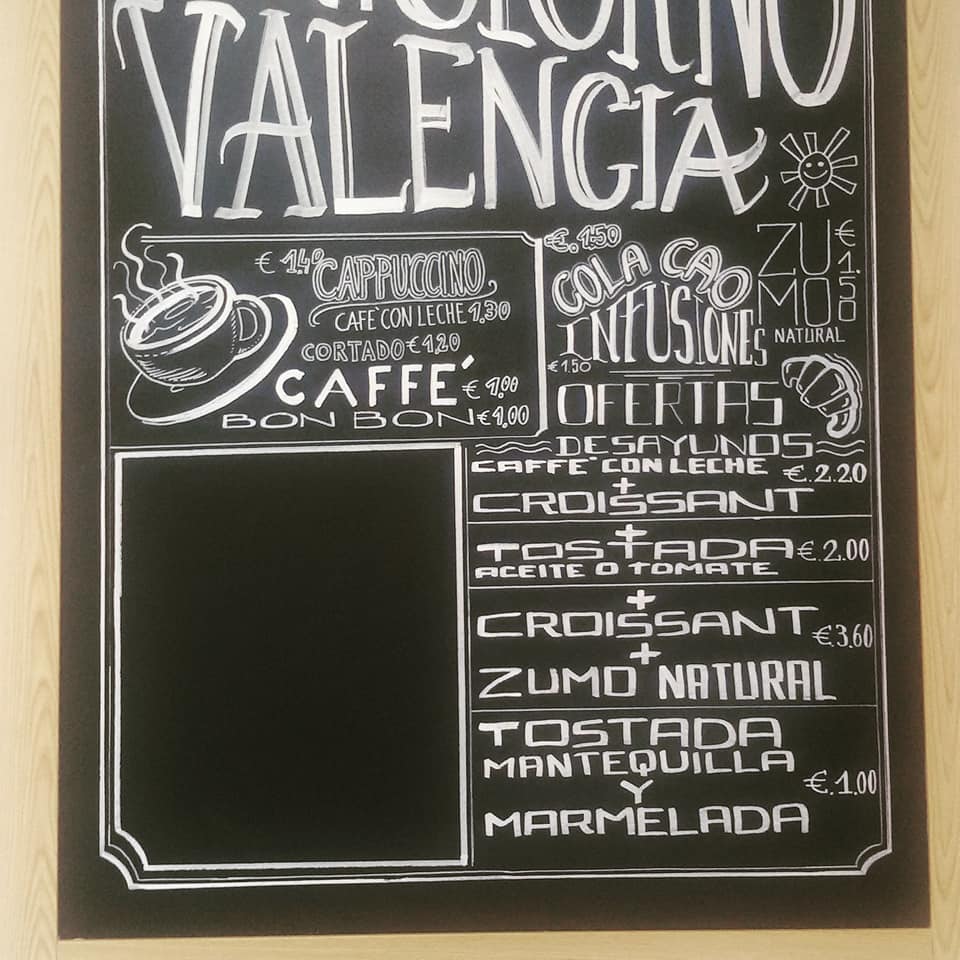 VALENCIA
€ 1.40 CAPPUCCINO
CAFE CON LECHE 1,30
CORTADO € 1,20
CAFFE' € 1,00
BON BON € 1,00
€. 1.50
COLA CAO
INFUSIONES
€ 1.50
ZUMO € 1.50
NATURAL
OFERTAS
DESAYUNOS
CAFFE' CON LECHE €.2.20
+
CROISSANT
+
TOSTADA €.2.00
ACEITE O TOMATE
+
CROISSANT €.3.60
+
ZUMO NATURAL
TOSTADA
MANTEQUILLA
Y €.1.00
MARMELADA